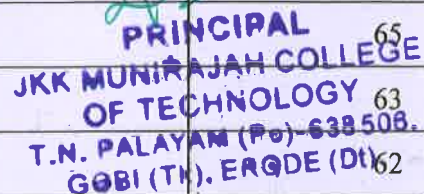 PRINCIPAL
65
JKK MUNIRAJAH COLLEGE
OF TECHNOLOGY
63
T.N. PALAYAM (Po)-638 506.
GOBI (Tk). ERODE (Dt)
62